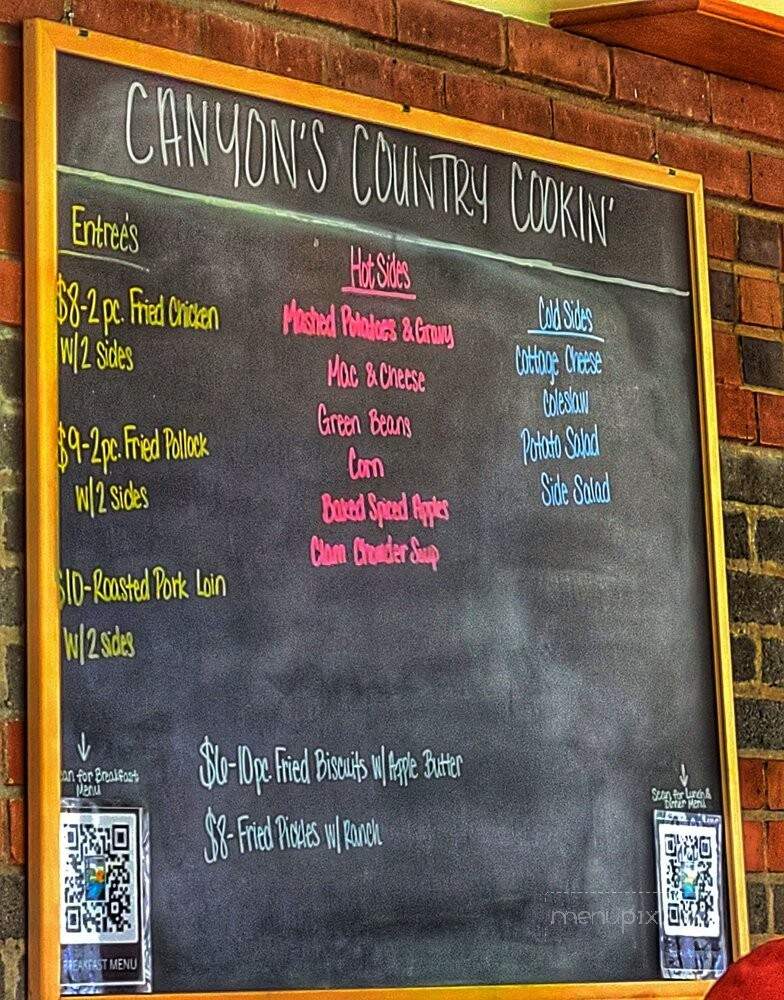 CANYON'S COUNTRY COOKIN'
Entree's
$8-2 pc. Fried Chicken
W/2 Sides
$9-2pc. Fried Pollock
W/2 sides
$10-Roasted Pork Loin
W/2 sides
Hot Sides
Mashed Potatoes & Gravy
Mac & Cheese
Green Beans
Corn
Baked Spiced Apples
Clam Chowder Soup
Cold Sides
Cottage Cheese
Coleslaw
Potato Salad
Side Salad
$6-10pc Fried Biscuits W/Apple Butter
$8- Fried Pickles w/ Ranch
for Breakfast
Menu
BREAKFAST MENU
Scan for Lunch &
Dinner Menu
menupix